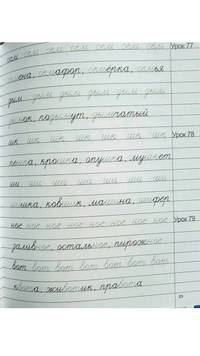 сем сем сем сем сем сем сем Урок 77
семена, семафор, семёрка, семья
дым дым дым дым дым дым
дымок, подымут, дымчатый
шк шк шк шк шк шк шк Урок 78
пешка, крошка, опушка, мушкет
ши ши ши ши ши ши ши ши
шишка, ковшик, машина, шифер
ное ное ное ное ное ное ное Урок 79
заливное, остальное, пирожное
вот вот вот вот вот вот вот
квота, животик, правота
23